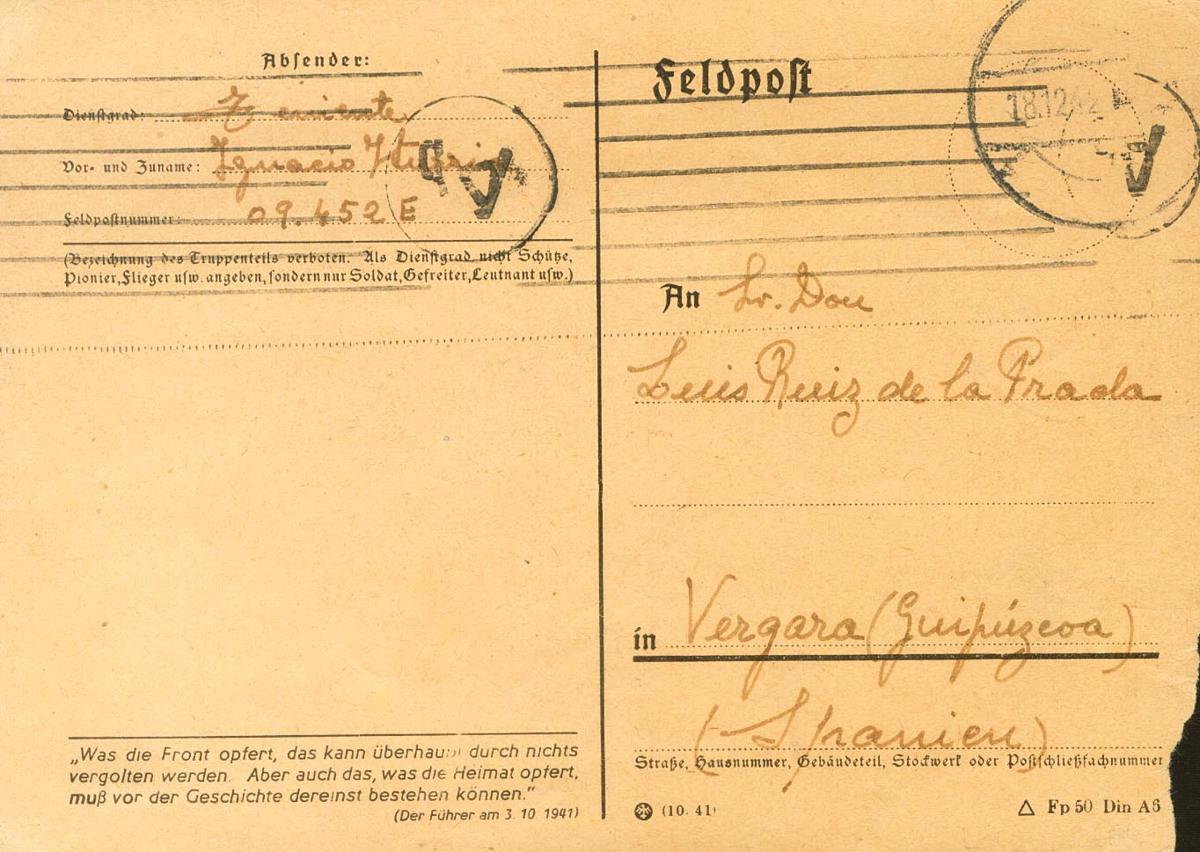 Absender:
Dienstgrad: Teniente
Vor- und Zuname: Ignacio
Feldpostnummer: 09.452 E
(Bezeichnung des Truppenteils verboten. Als Dienstgrad nicht Schütze,
Pionier, Flieger usw. angeben, sondern nur Soldat, Gefreiter, Leutnant usw.)
„Was die Front opfert, das kann überhaupt durch nichts
vergolten werden. Aber auch das, was die Heimat opfert,
muß vor der Geschichte dereinst bestehen können.“
(Der Führer am 3. 10. 1941)
Feldpost
18.12.42
A
An Sr. Don
Luis Ruiz de la Prada
in Vergara (Guipúzcoa)
(Spanien)
Straße, Hausnummer, Gebäudeteil, Stockwerk oder Postschließfachnummer
(10. 41)
Fp 50 Din A6